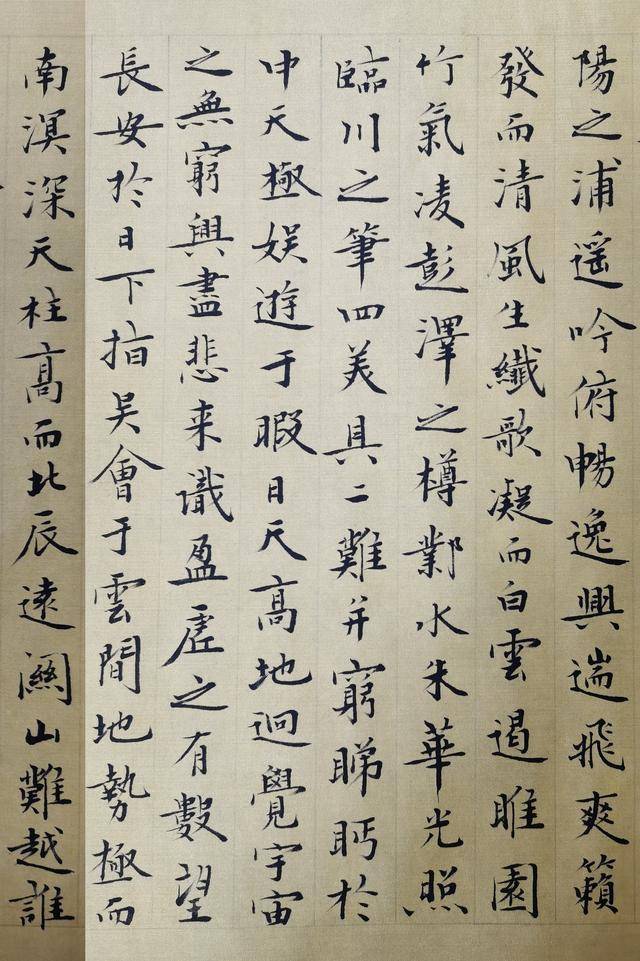 陽之浦遥吟俯暢逸興遄飛爽籟
發而清風生纖歌凝而白雲遏睢園
竹氣凌彭澤之樽鄴水朱華光照
臨川之筆四美具二難并窮睇眄於
中天極娱遊于暇日天高地迥覺宇宙
之無窮興盡悲来識盈虛之有數望
長安於日下指吴會于雲間地勢極而
南溟深天柱高而北辰遠關山難越誰